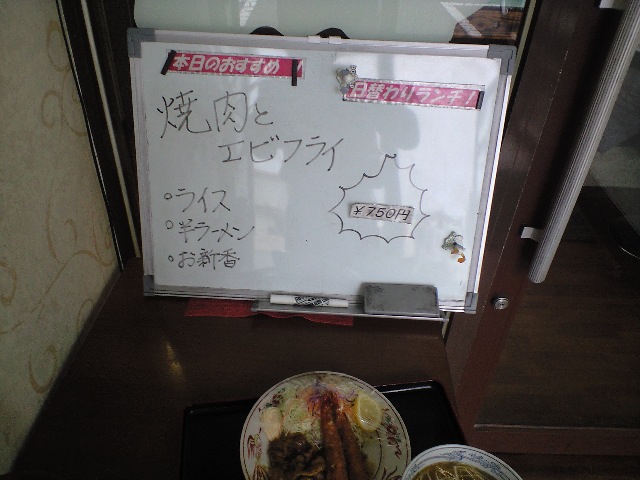 本日のおすすめ
日替わりランチ!
焼肉と
エビフライ
○ライス
○半ラーメン
○お新香
¥750円